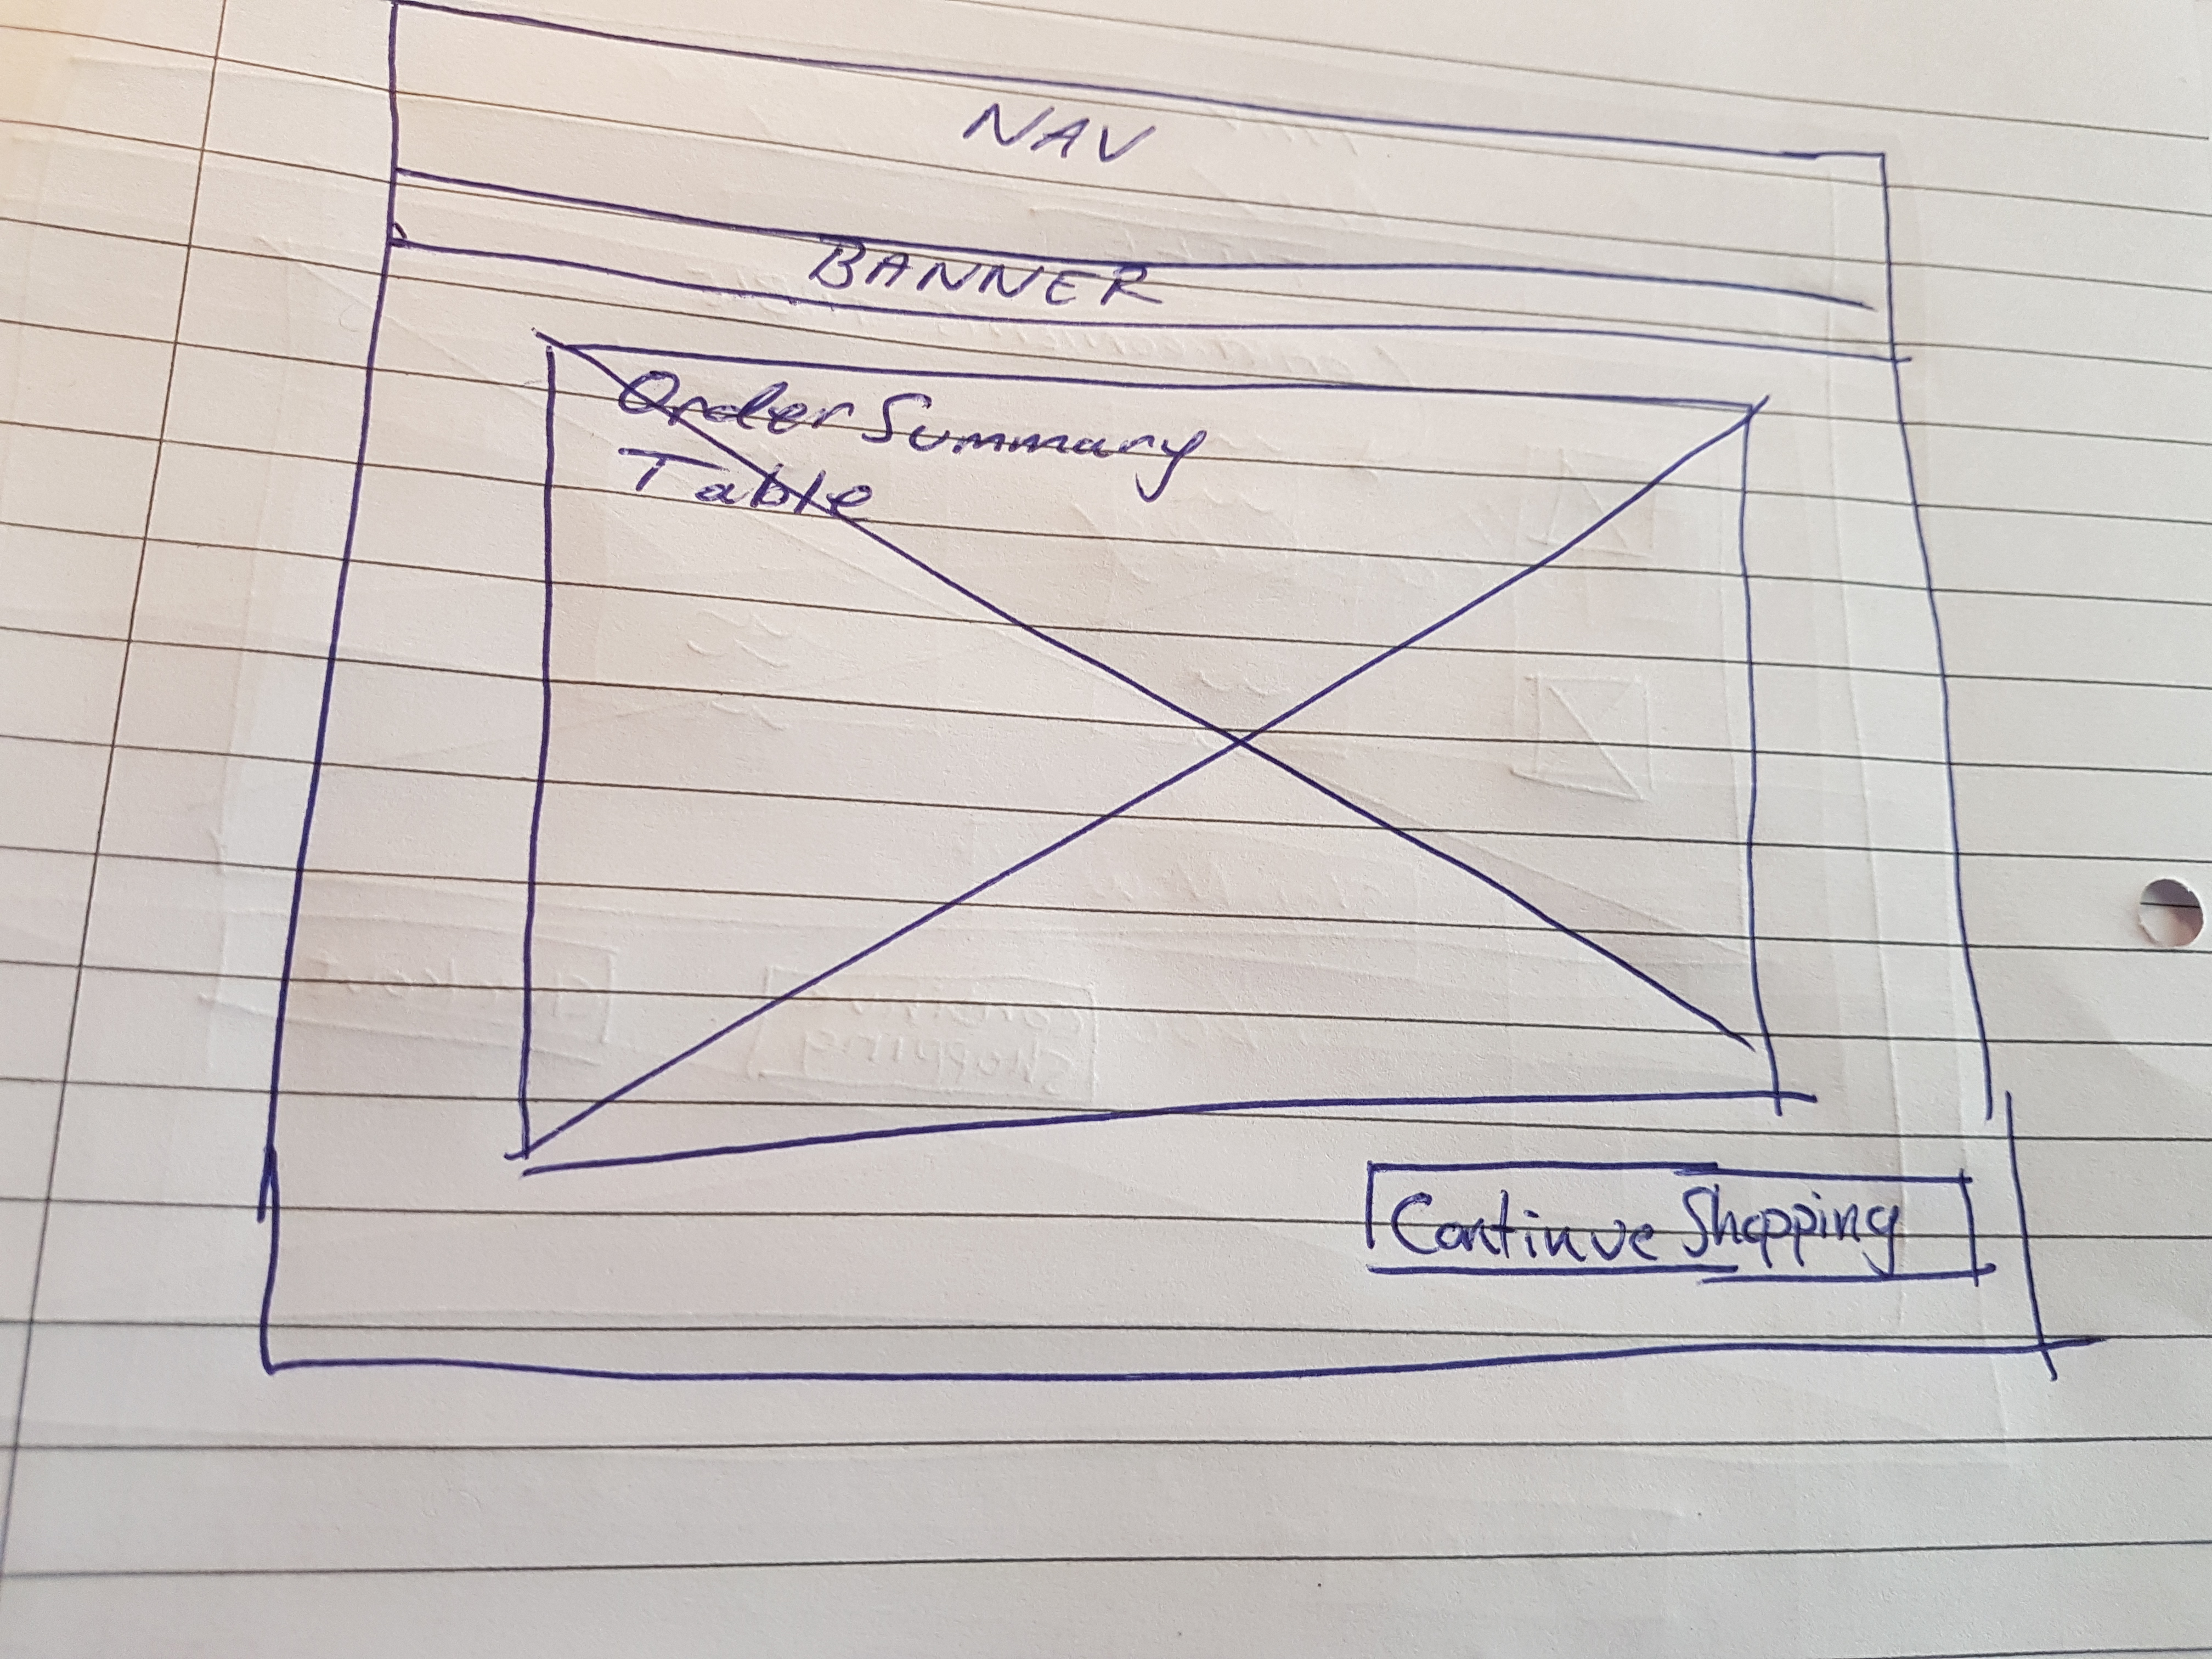 NAV
BANNER
Order Summary
Table
Continue Shopping